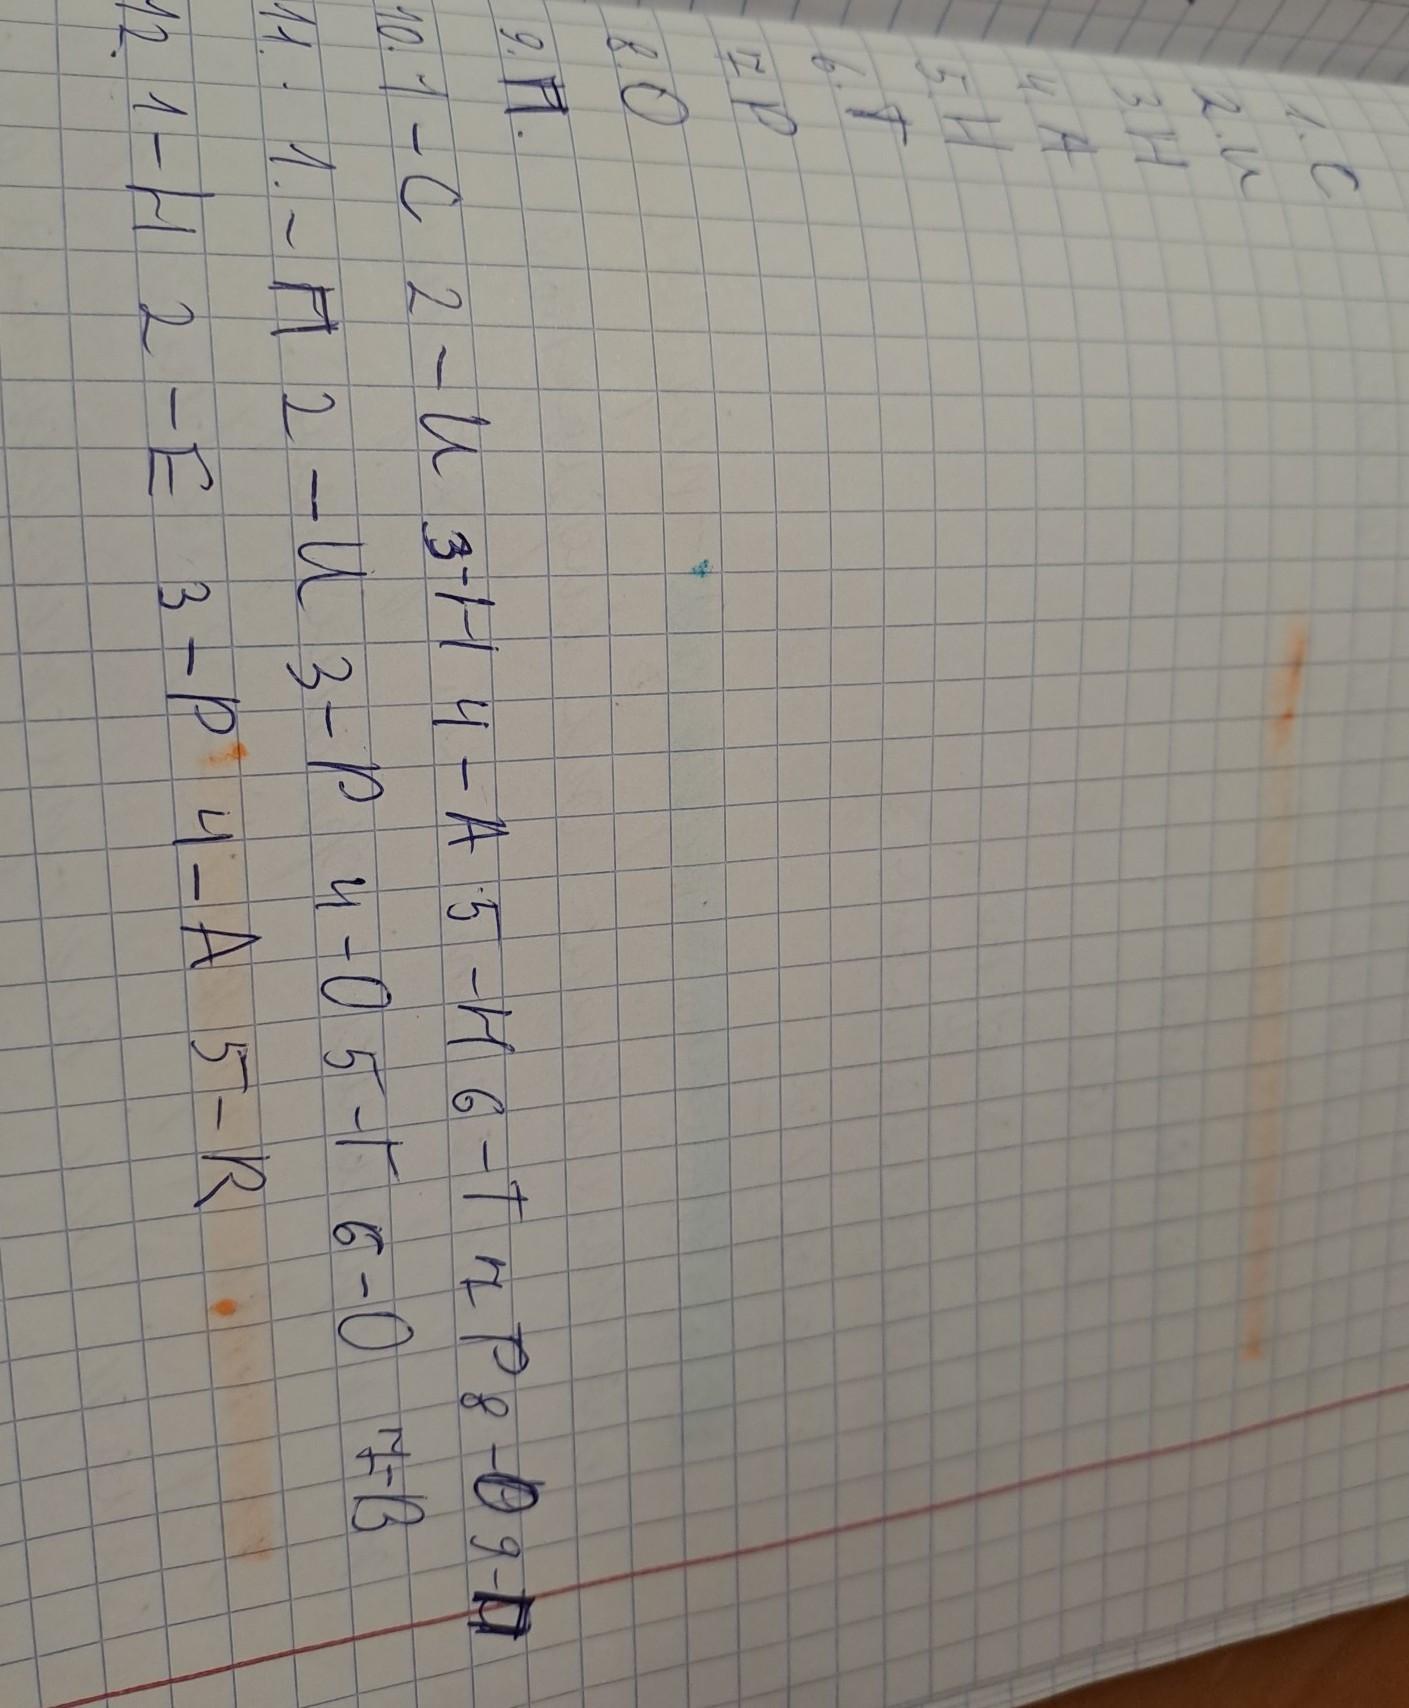 1. С
2. И
3 Н
4 А
5 Н
6. Т
7 Р
8. О
9. П.
10. 1 - С 2 - И 3-Н 4 - А 5 - Н 6 - Т 7 Р 8 - О 9 - П
11. 1. - П 2 - И 3 - Р 4 - О 5 - Г 6 - О 7 - В
12. 1 - Н 2 - Е 3 - Р 4 - А 5 - R